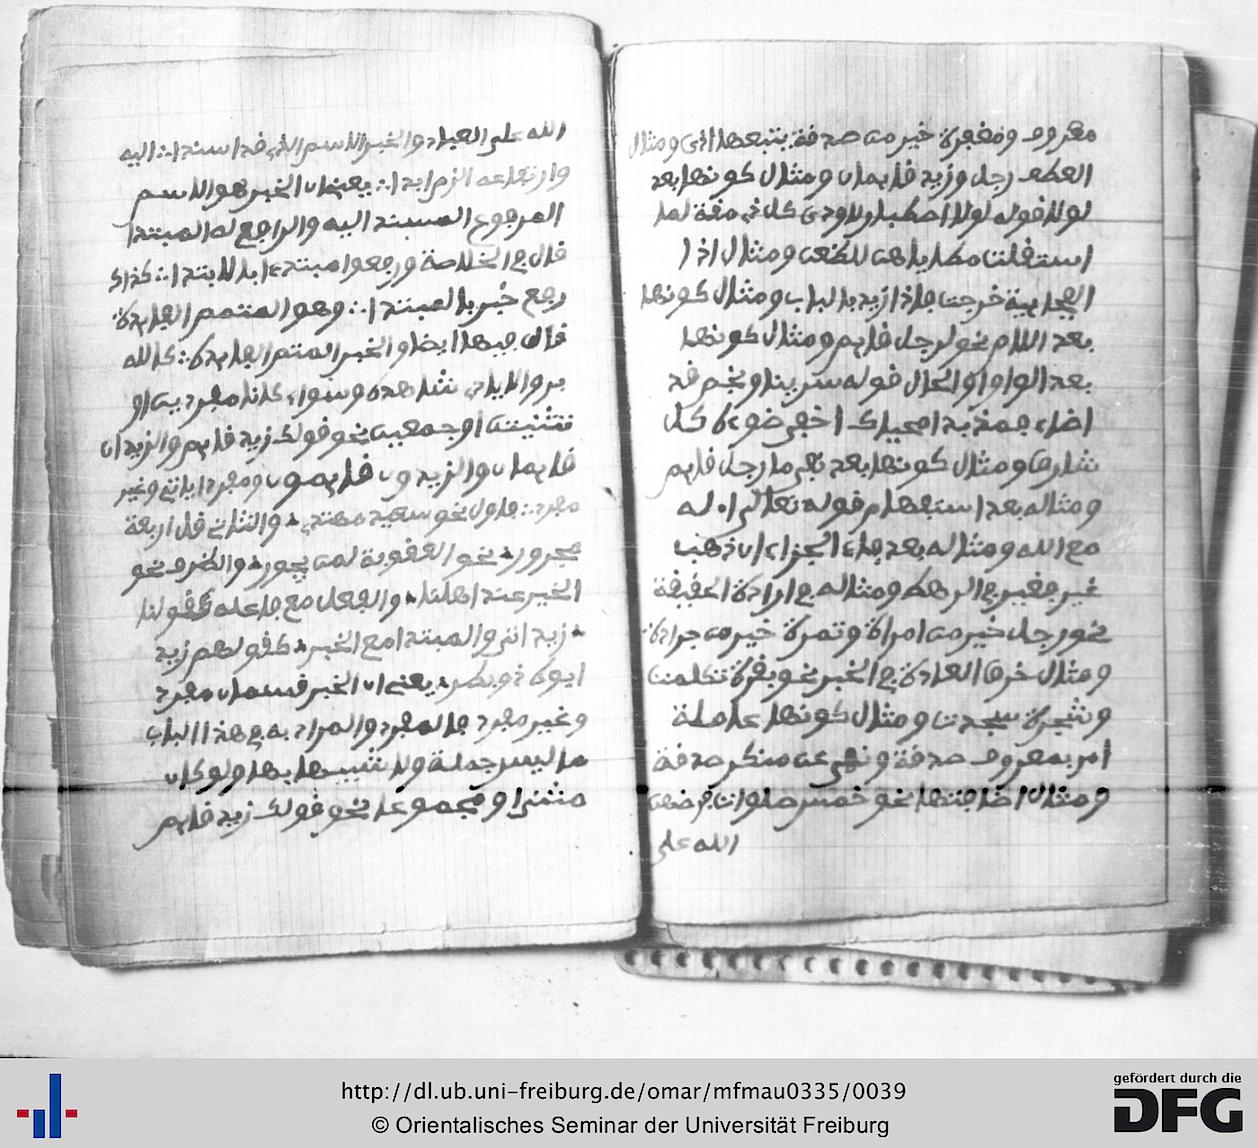 معروف ومغفرة خير من صدقة يتبعها اذى ومثال
العطف رجل وزيد قايمان ومثال كونها بعد
لولا قوله لولا اصطبار لاودى كل ذي مقة لما
استقلت مطاياهن للظعن ومثال اذا
الفجاىية خرجت فاذا زيد بالباب ومثال كونها
بعد اللام نحو لرجل قايم ومثال كونها
بعد الواو او الحال قوله سرينا ونجم قد
اضاء فمذ بدا محياك اخفى ضوءه كل
شارق ومثال كونها بعد نفي ما رجل قايم
ومثاله بعد استفهام قوله تعالى اءله
مع الله ومثاله بعد فاء الجزاء ان ذهب
عير فعير في الرهط ومثاله في ارادة الحقيقة
نحو رجل خير من امراة وتمرة خير من جرادة
ومثال خرق العادة في الخبر نحو بقرة تكلمت
وشجرة سجدت ومثال كونها عاملة
امر بمعروف صدقة ونهي عن منكر صدقة
ومثال اضافتها نحو خمس صلوات فرضهن
الله على
الله على العباد والخبر الاسم الذي قد اسند اليه
وارتفاعه الزم ابدا يعني ان الخبر هو الاسم
المرفوع المسند اليه والراجع له المبتدا
قال في الخلاصة ورفعوا مبتدءا بالابتدا كذاك
رفع خبر بالمبتدا وهو المتمم الفايدة
قال فيها ايضا والخبر المتم الفايدة كالله
بر والايادي شاهدة وسواء كانا مفردين او
تثنيتن او جمعين نحو قولك زيد قايم والزيدان
قايمان والزيدون قايمون ومفردا ياتي وغير
مفرد فاول نحو سعيد مهتدي والثاني قل اربعة
مجرور نحو العقوبة لمن يجور والظرف نحو
الخير عند اهلنا والفعل مع فاعله كقولنا
زيد اتى والمبتدا مع الخبر كقولهم زيد
ابوه ذو بطر يعني ان الخبر قسمان مفرد
وغير مفرد فالمفرد والمراد به في هذا الباب
ما ليس جملة ولا شبيها بها ولو كان
مثنى او مجموعا نحو قولك زيد قايم
http://dl.ub.uni-freiburg.de/omar/mfmau0335/0039
© Orientalisches Seminar der Universität Freiburg
gefördert durch die
DFG